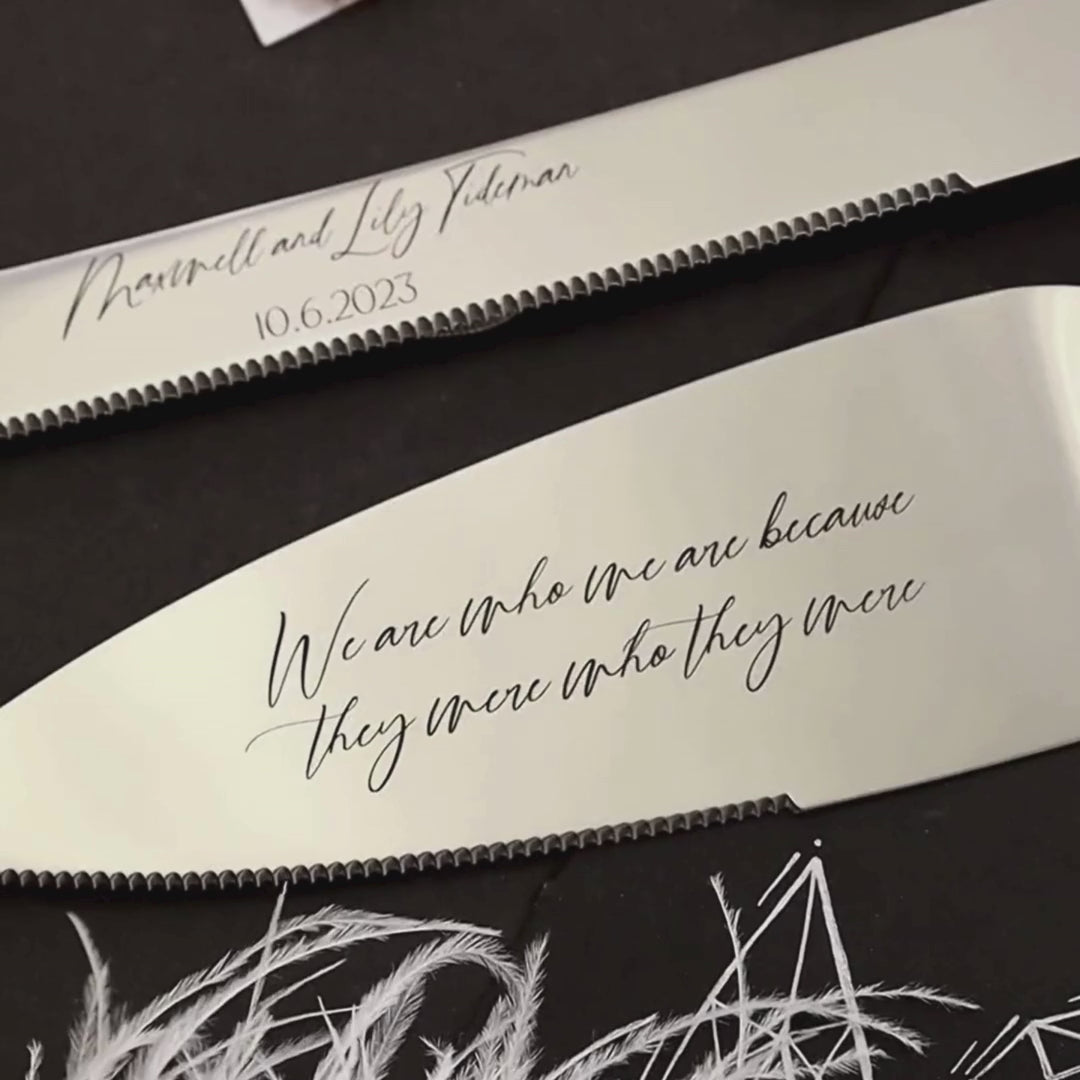 Maxwell and Lily Tideman
10.6.2023
We are who we are because
they were who they were